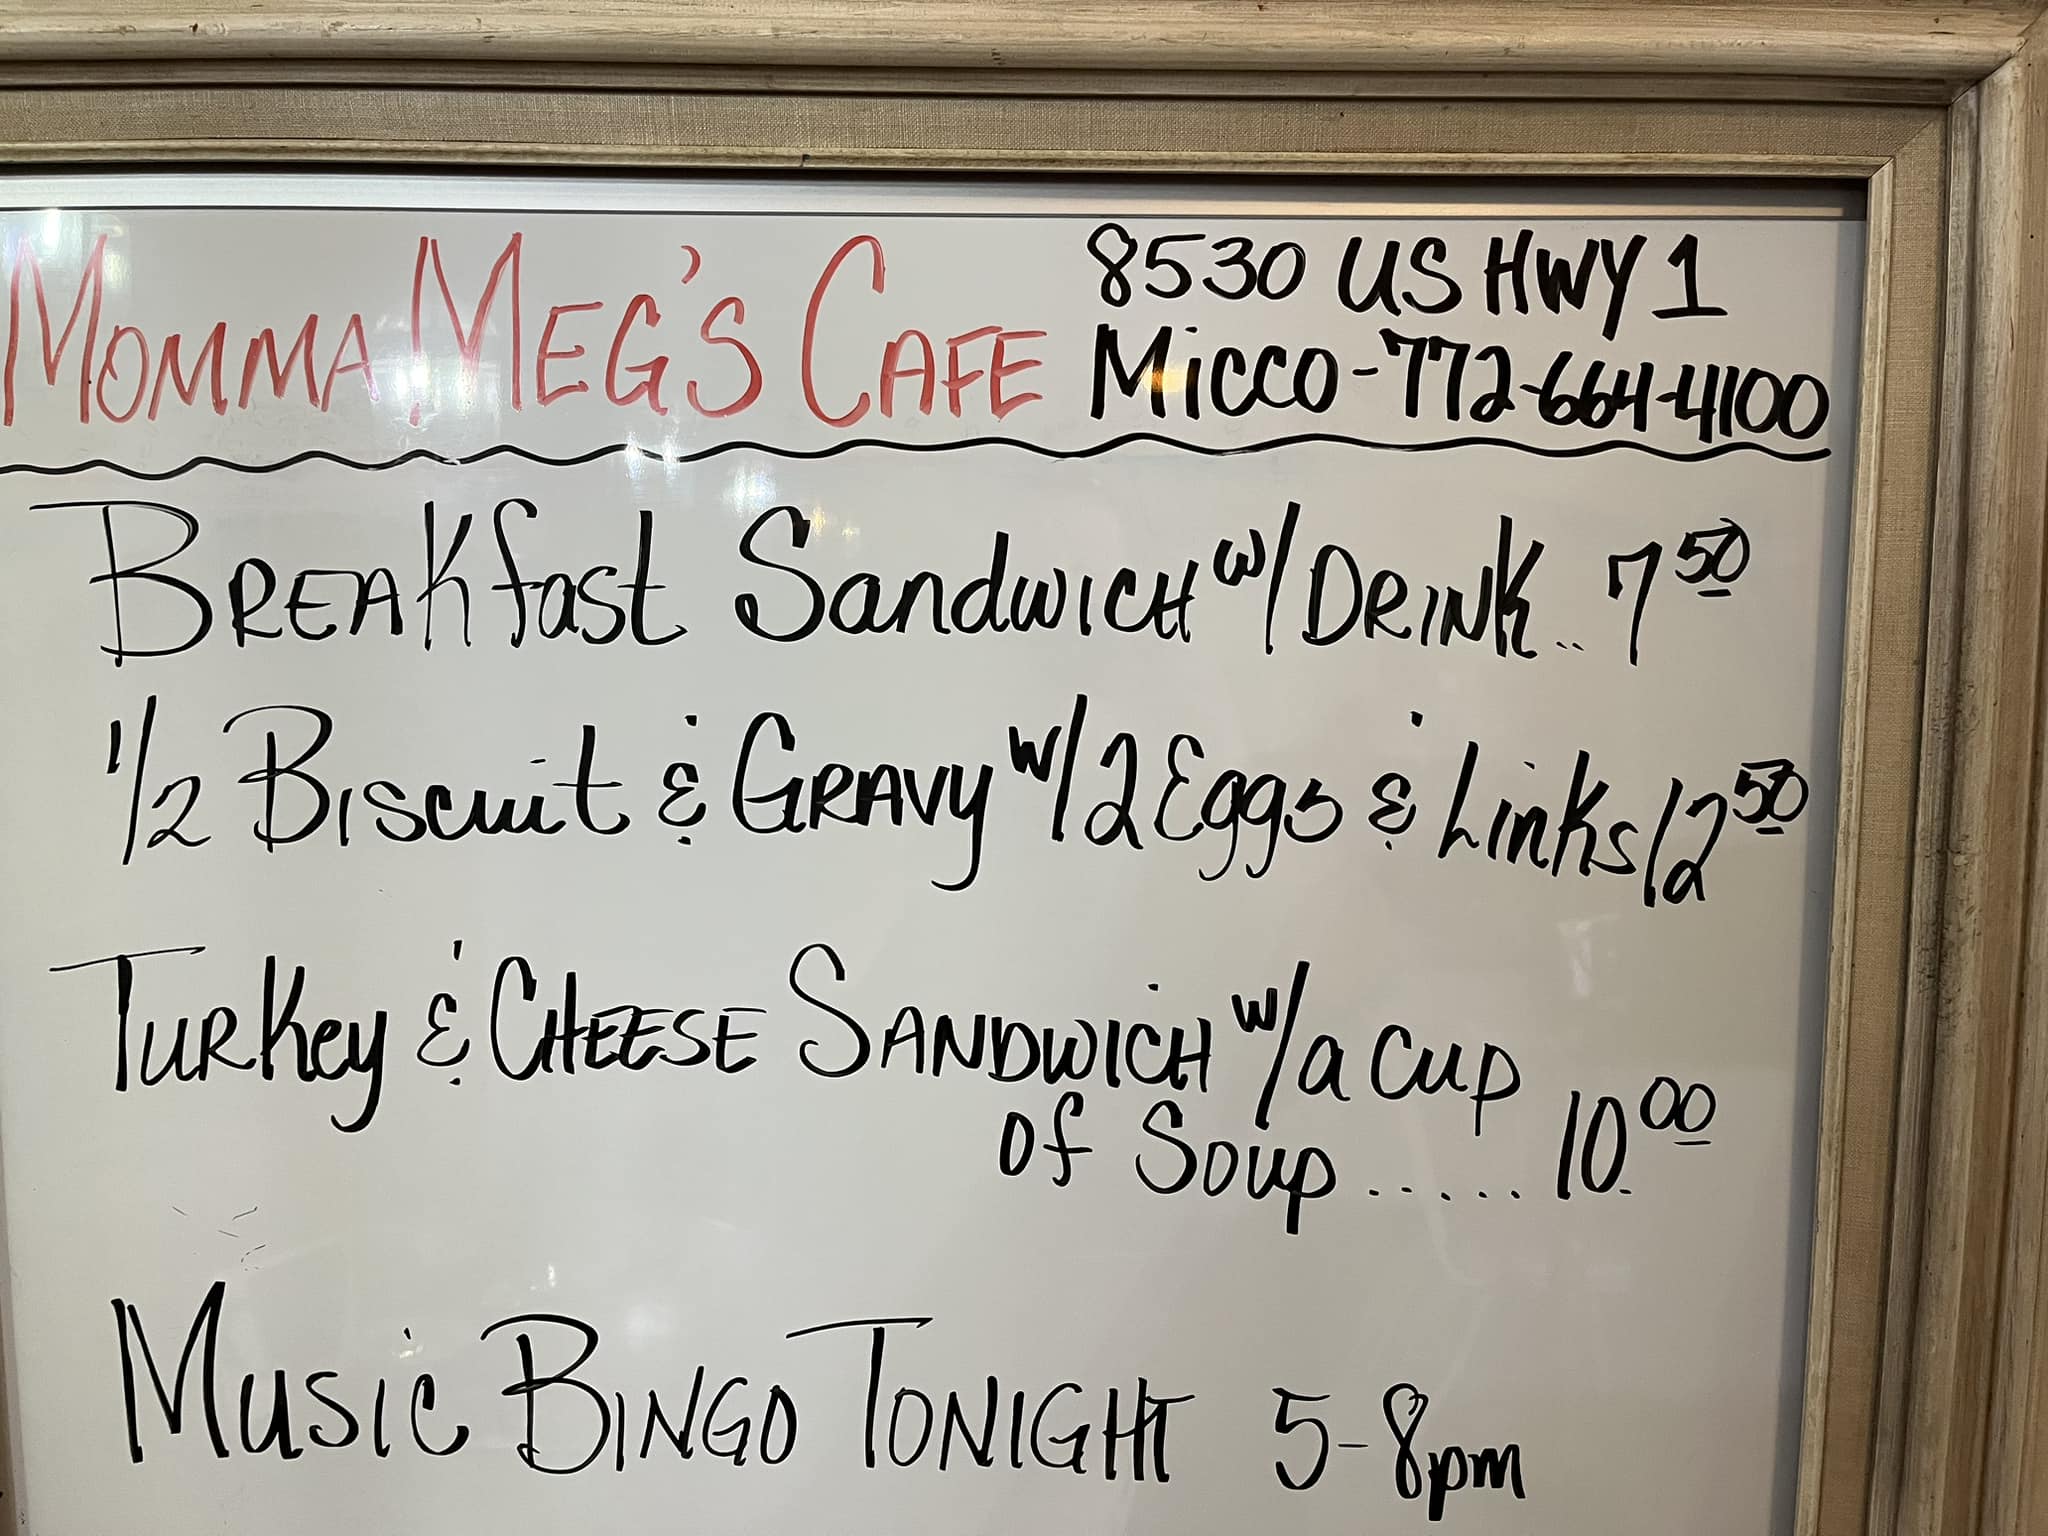 MOMMA MEG'S CAFE
8530 US HWY 1
Micco-772-664-4100
BREAKfast Sandwich w/ DRINK.. 7 50
1/2 Biscuit & GRAVY w/2 Eggs & Links 12 50
Turkey & CHEESE SANDWICH w/a cup
of Soup...... 10.00
Music BINGO TONIGHT 5-8pm